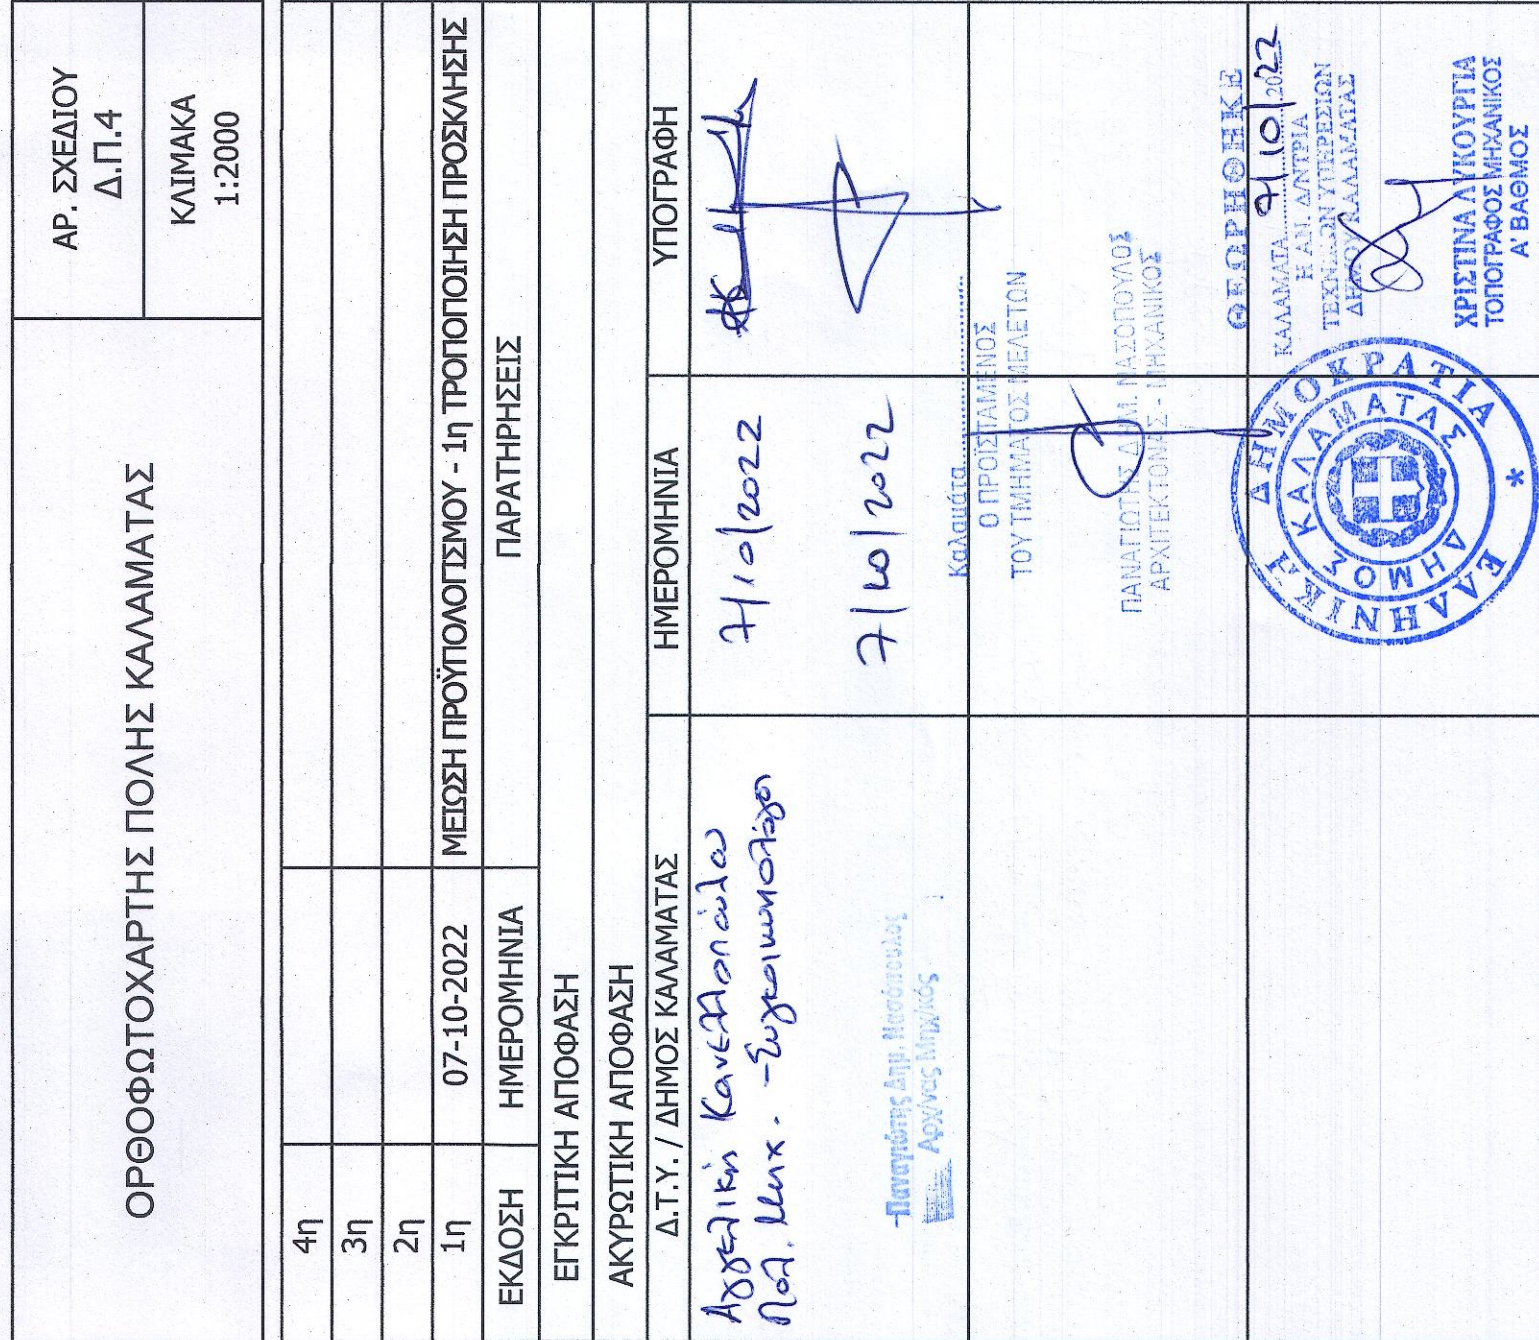 ΟΡΘΟΦΩΤΟΧΑΡΤΗΣ ΠΟΛΗΣ ΚΑΛΑΜΑΤΑΣ
ΑΡ. ΣΧΕΔΙΟΥ
Δ.Π.4
ΚΛΙΜΑΚΑ
1:2000
4η
3η
2η
1η 07-10-2022 ΜΕΙΩΣΗ ΠΡΟΫΠΟΛΟΓΙΣΜΟΥ - 1η ΤΡΟΠΟΠΟΙΗΣΗ ΠΡΟΣΚΛΗΣΗΣ
ΕΚΔΟΣΗ ΗΜΕΡΟΜΗΝΙΑ ΠΑΡΑΤΗΡΗΣΕΙΣ
ΕΓΚΡΙΤΙΚΗ ΑΠΟΦΑΣΗ
ΑΚΥΡΩΤΙΚΗ ΑΠΟΦΑΣΗ
Δ.Τ.Υ. / ΔΗΜΟΣ ΚΑΛΑΜΑΤΑΣ ΗΜΕΡΟΜΗΝΙΑ ΥΠΟΓΡΑΦΗ
Αγγελική Κανελλοπούλου 7/10/2022
Πολ. Μηχ. - Συγκοινωνιολόγος
7/10/2022
Παναγιώτης Δημ. Νασόπουλος
Αρχ/νας Μηχ/κός
Καλαμάτα
Ο ΠΡΟΪΣΤΑΜΕΝΟΣ
ΤΟΥ ΤΜΗΜΑΤΟΣ ΜΕΛΕΤΩΝ
ΠΑΝΑΓΙΩΤΗΣ ΔΗΜ. ΝΑΣΟΠΟΥΛΟΣ
ΑΡΧΙΤΕΚΤΟΝΑΣ - ΜΗΧΑΝΙΚΟΣ
ΘΕΩΡΗΘΗΚΕ
ΚΑΛΑΜΑΤΑ 7/10/2022
Η ΑΝ. Δ/ΝΤΡΙΑ
ΤΕΧΝΙΚΩΝ ΥΠΗΡΕΣΙΩΝ
ΔΗΜΟΥ ΚΑΛΑΜΑΤΑΣ
ΧΡΙΣΤΙΝΑ ΛΥΚΟΥΡΓΙΑ
ΤΟΠΟΓΡΑΦΟΣ ΜΗΧΑΝΙΚΟΣ
Α' ΒΑΘΜΟΣ
ΕΛΛΗΝΙΚΗ ΔΗΜΟΚΡΑΤΙΑ *
ΔΗΜΟΣ ΚΑΛΑΜΑΤΑΣ